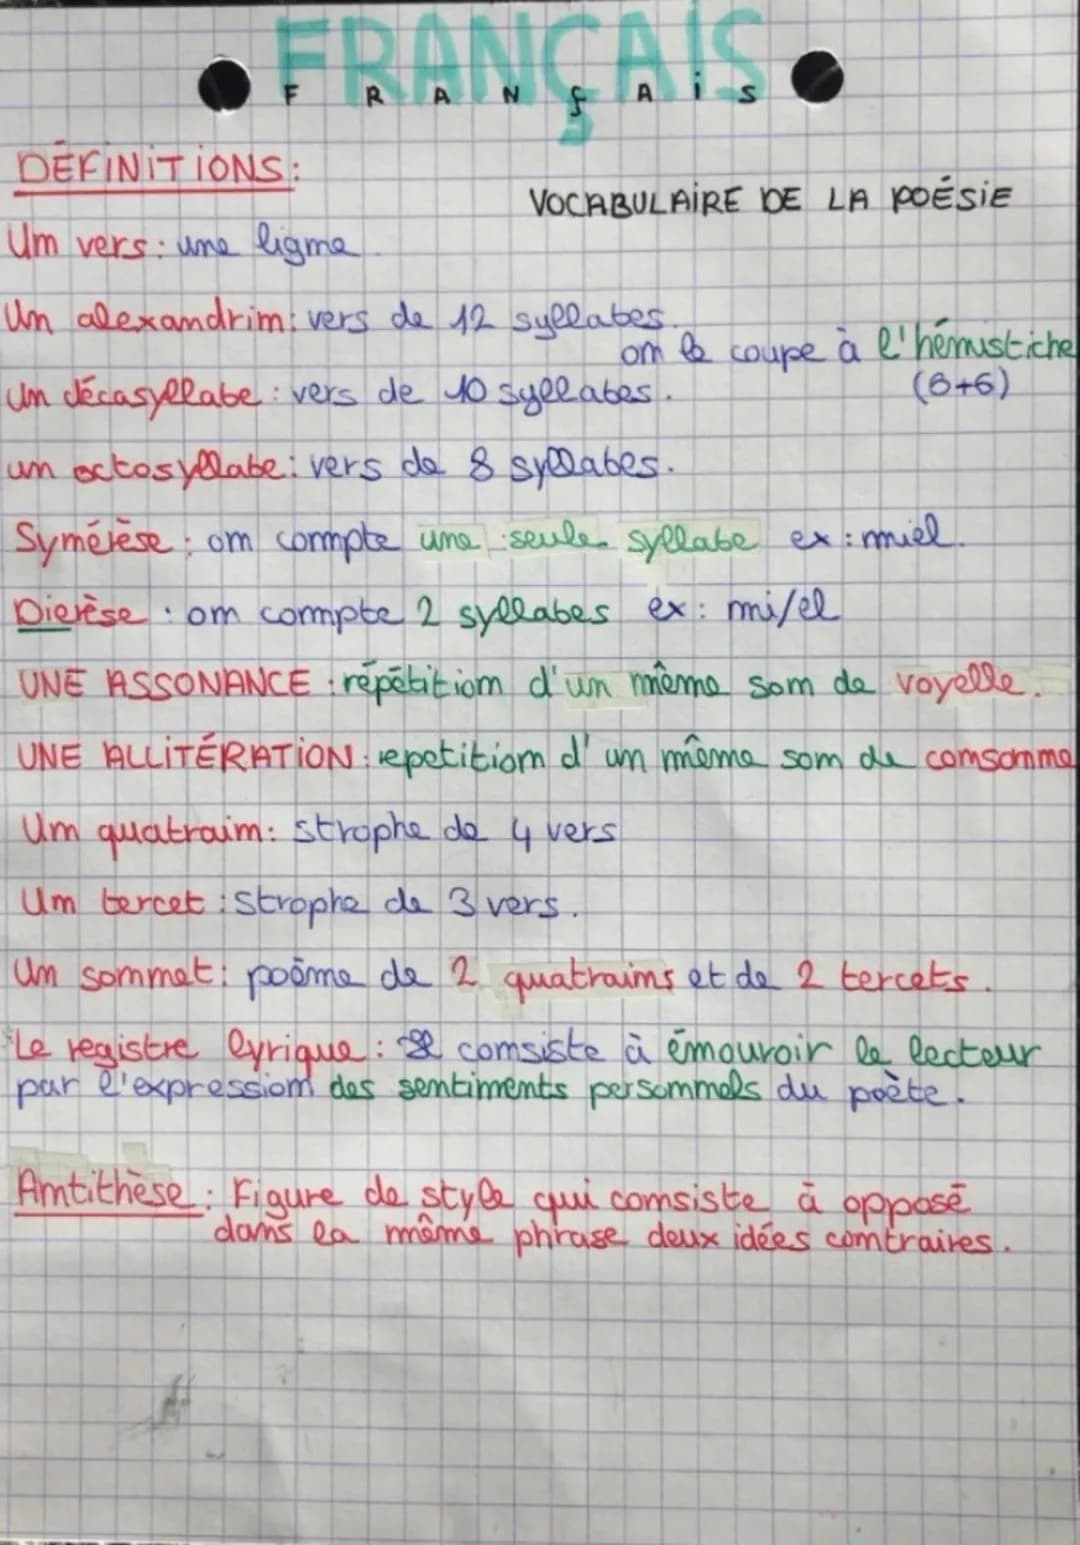 FRANÇAIS
FRANÇAiS
DÉFiNiTiONS:
VOCABULAiRE DE LA POÉSiE
Un vers : une ligne.
Un alexandrin : vers de 12 syllabes.
on le coupe à l'hémistiche
(6+6)
Un décasyllabe : vers de 10 syllabes.
un octosyllabe : vers de 8 syllabes.
Synérèse : on compte une seule syllabe ex : miel.
Dierèse : on compte 2 syllabes ex : mi/el
UNE ASSONANCE : répétition d'un même son de voyelle.
UNE ALLiTÉRATiON : repetition d'un même son de consonne
Un quatrain : strophe de 4 vers
Un tercet : Strophe de 3 vers.
Un sonnet : poême de 2 quatrains et de 2 tercets.
Le registre lyrique : Il consiste à émouvoir le lecteur
par l'expression des sentiments personnels du poète.
Antithèse : Figure de style qui consiste à opposé
dans la même phrase deux idées contraires.